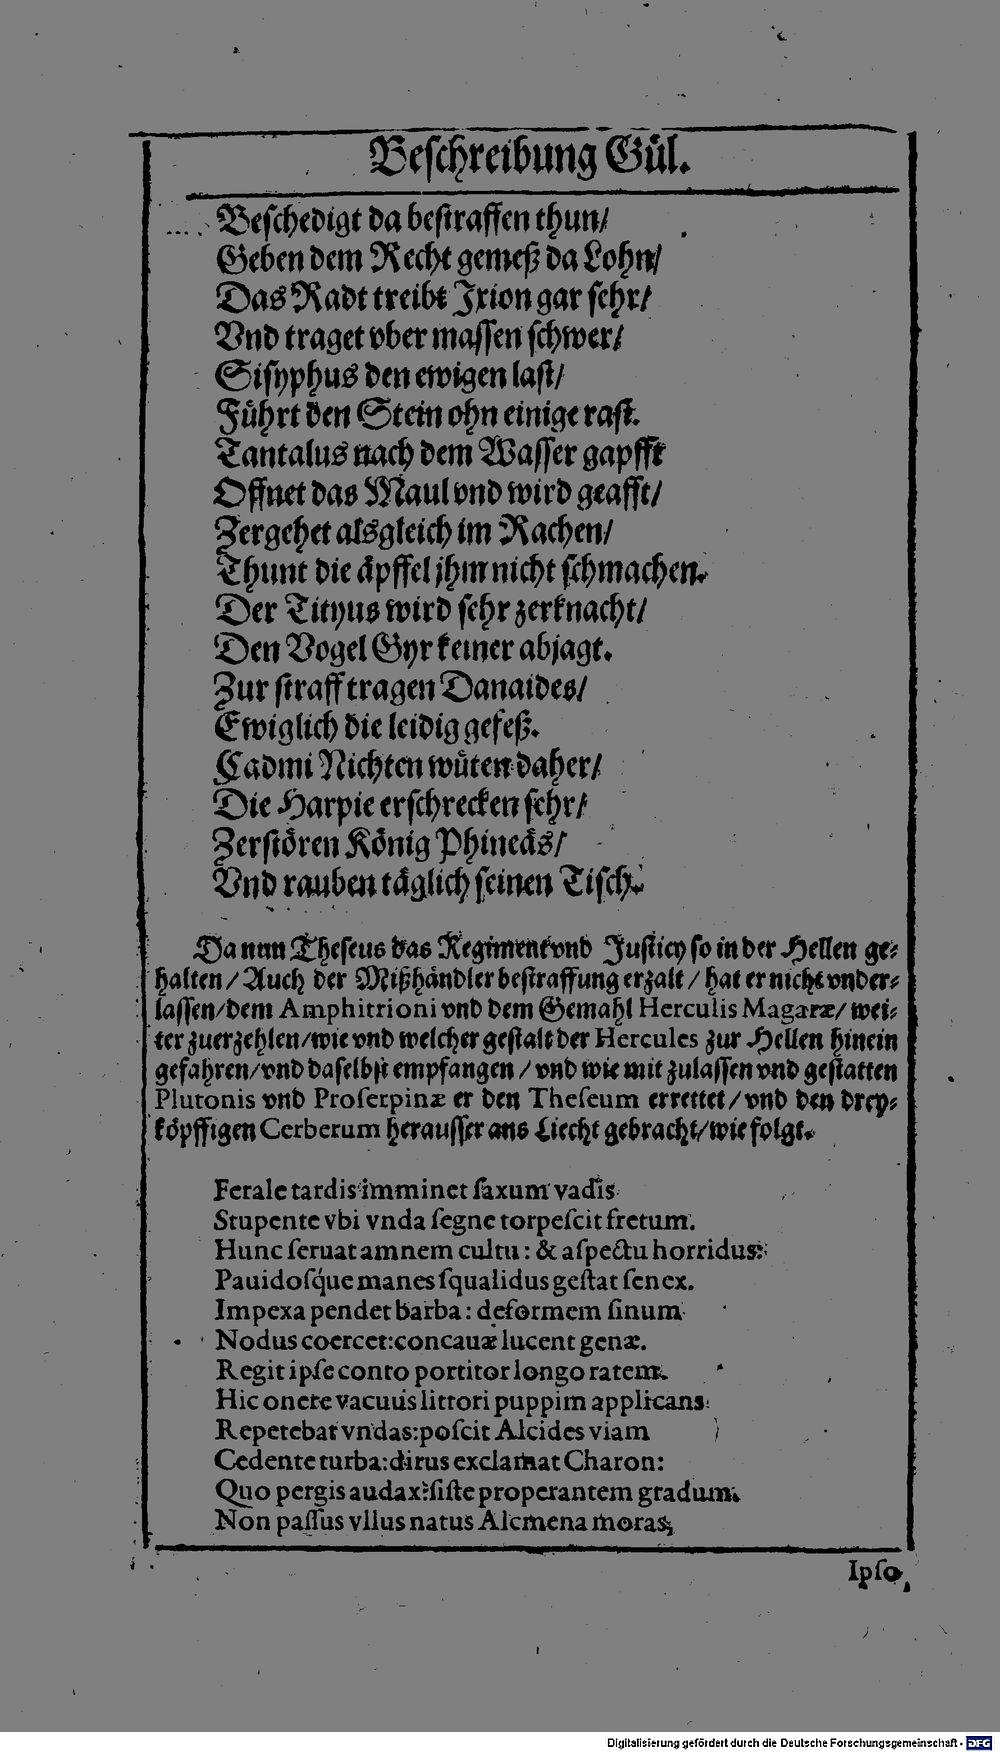 Beschreibung Gül.
Beschedigt da bestraffen thun/
Geben dem Recht gemeß da Lohn/
Das Radt treibt Jxion gar sehr/
Vnd traget vber massen schwer/
Sisyphus den ewigen last/
Führt den Stein ohn einige rast.
Tantalus nach dem Wasser gapfft
Offnet das Maul vnd wird geafft/
Zergehet alsgleich im Rachen/
Thunt die äpffel jhm nicht schmachen.
Der Tityus wird sehr zerknacht/
Den Vogel Gyr keiner abjagt.
Zur straff tragen Danaides/
Ewiglich die leidig gefeß.
Cadmi Nichten wüten daher/
Die Harpie erschrecken sehr/
Zerstören König Phineäs/
Vnd rauben täglich seinen Tisch.
Da nun Theseus das Regiment vnd Justicy so in der Hellen ge-
halten / Auch der Mißhändler bestraffung erzalt / hat er nicht vnder-
lassen/dem Amphitrioni vnd dem Gemahl Herculis Magaræ/ wei-
ter zuerzehlen/wie vnd welcher gestalt der Hercules zur Hellen hinein
gefahren/vnd daselbst empfangen / vnd wie mit zulassen vnd gestatten
Plutonis vnd Proserpinæ er den Theseum errettet/vnd den drey-
köpffigen Cerberum herausser ans Liecht gebracht/wie folgt.
Ferale tardis imminet saxum vadis
Stupente vbi vnda segne torpescit fretum.
Hunc seruat amnem cultu: & aspectu horridus:
Pauidosq́ue manes squalidus gestat senex.
Impexa pendet barba: deformem sinum
Nodus coercet:concauæ lucent genæ.
Regit ipse conto portitor longo ratem.
Hic onere vacuus littori puppim applicans
Repetebat vndas:poscit Alcides viam
Cedente turba:dirus exclamat Charon:
Quo pergis audax?siste properantem gradum.
Non passus vllus natus Alcmena moras,
Ipso
Digitalisierung gefördert durch die Deutsche Forschungsgemeinschaft - DFG